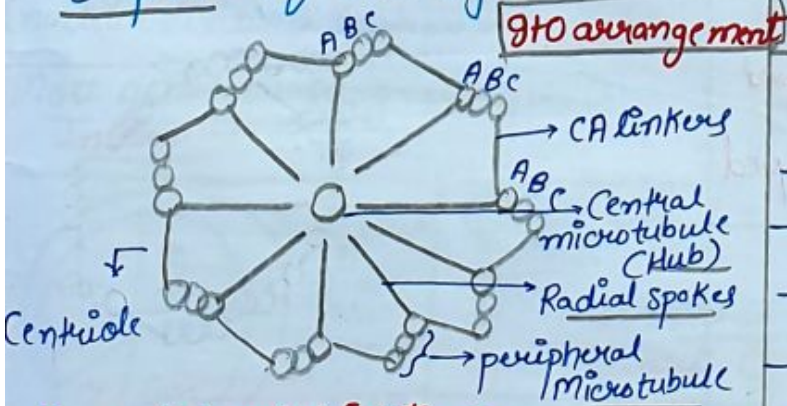 9+0 arrangement
A B C
A B C
CA linkers
A B C
Central
microtubule
(Hub)
Radial spokes
Centriole
peripheral
Microtubule